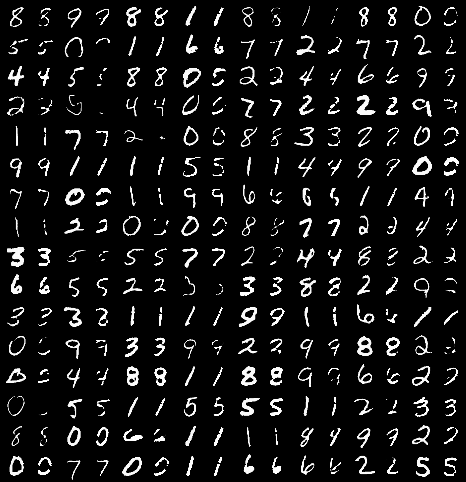 8 8 9 9 8 8 1 1 8 8 1 1 8 8 0 0
5 5 0 1 1 6 6 7 7 2 2 7 7 2 2
4 4 5 5 8 8 0 0 2 2 4 4 6 6 9 9
2 2 4 4 0 0 7 7 2 2 2 2 9 9
1 1 7 7 2 0 0 8 8 3 3 2 2 0 0
9 9 1 1 1 1 5 5 1 1 4 4 9 9 0 0
7 7 0 0 1 1 9 9 6 6 6 1 1 4 9
1 1 2 2 0 0 0 0 8 8 7 7 2 2 4 4
3 3 5 5 5 5 7 7 2 2 4 4 8 8 2 2
6 6 5 5 2 2 3 3 3 8 8 2 2 9
3 3 3 3 1 1 1 1 9 9 1 1 6 6 1 1
0 0 9 9 3 3 9 9 2 2 9 9 8 8 2 2
4 4 8 8 1 1 8 8 9 9 6 6 2 2
0 5 5 1 1 5 5 5 5 1 1 2 2 3 3
8 8 0 0 6 6 1 1 1 1 8 4 9 9 2 2
0 0 7 7 0 0 1 1 6 6 6 6 2 2 5 5